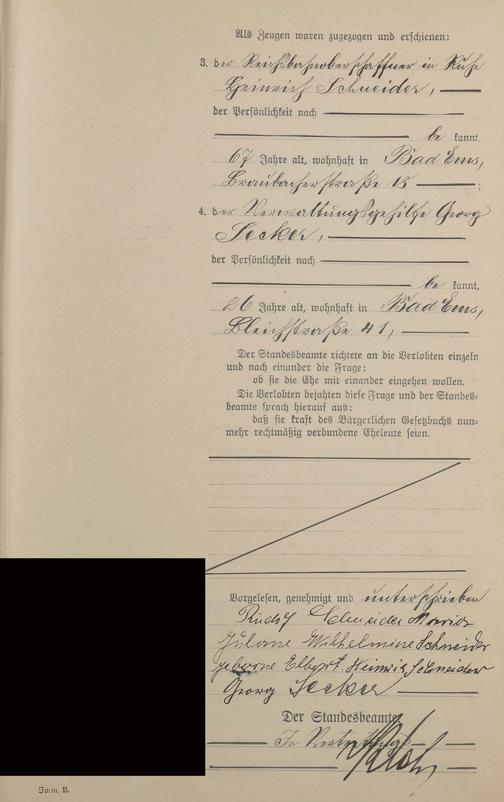 Als Zeugen waren zugezogen und erschienen:
3. der Reichsbahnoberschaffner in Ruhe
Heinrich Schneider,
der Persönlichkeit nach
be kannt,
67 Jahre alt, wohnhaft in Bad Ems,
Braubacherstraße 15 ;
4. der Verwaltungsgehilfe Georg
der Persönlichkeit nach
be kannt,
26 Jahre alt, wohnhaft in Bad Ems,
Bleichstraße 41,
Der Standesbeamte richtete an die Verlobten einzeln
und nach einander die Frage:
ob sie die Ehe mit einander eingehen wollen.
Die Verlobten bejahten diese Frage und der Standes-
beamte sprach hierauf aus:
daß sie kraft des Bürgerlichen Gesetzbuchs nun-
mehr rechtmäßig verbundene Eheleute seien.
Vorgelesen, genehmigt und unterschrieben
Rudolf Schneider
Wilhelmine Schneider
geborne Elbert Heinrich Schneider
Georg
Der Standesbeamte
In Vertretung
Form. B.